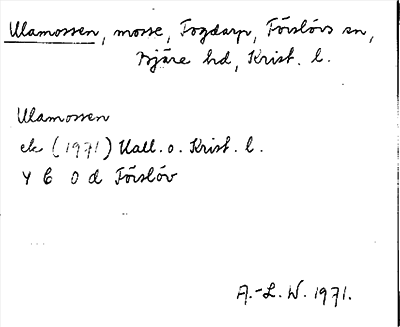 Ulamossen, mosse, Fogdarp, Förslövs sn,
Bjäre hd, Krist. l.
Ulamossen
ek (1971) Hall. o. Krist. l.
4 C 0 d Förslöv
A.-L. W. 1971.